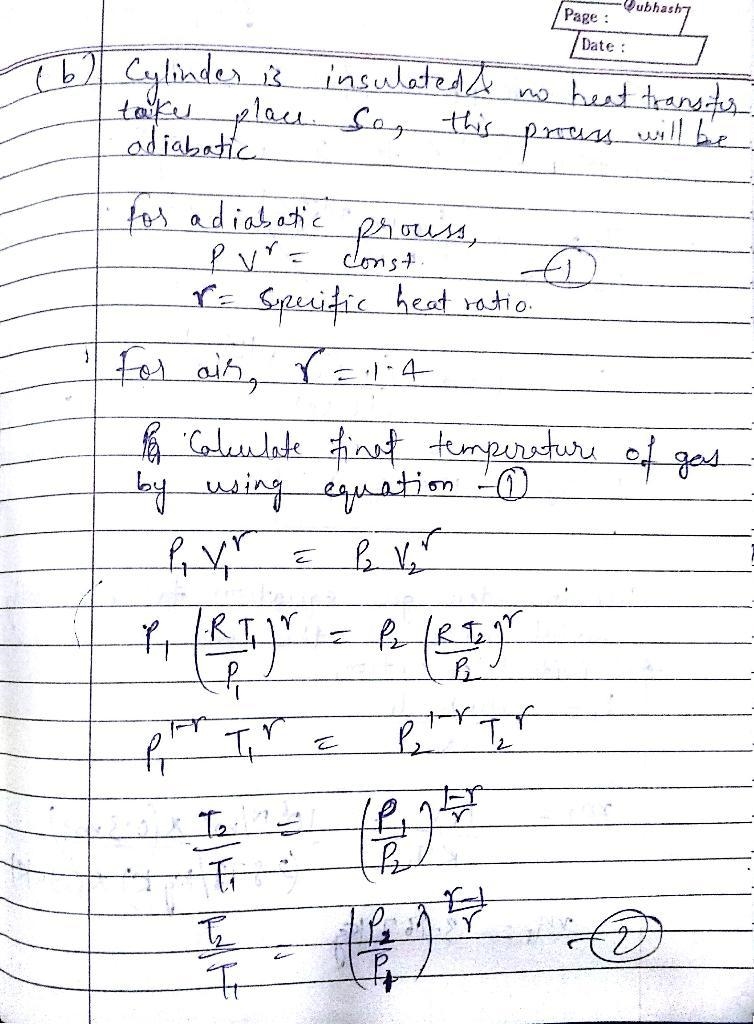 Subhash
Page :
Date :
(b) Cylinder is insulated & no heat transfer
takes place. So, this process will be
adiabatic
for adiabatic process,
P V^r = Const. -①
r = Specific heat ratio.
For air, r = 1.4
Calculate final temperature of gas
by using equation -①
P₁ V₁^r = P₂ V₂^r
P₁ (RT₁/P₁)^r = P₂ (RT₂/P₂)^r
P₁^(1-r) T₁^r = P₂^(1-r) T₂^r
T₂/T₁ = (P₁/P₂)^((1-r)/r)
T₂/T₁ = (P₂/P₁)^((r-1)/r) -②